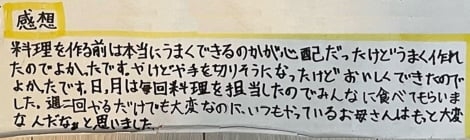 感想
料理を作る前は本当にうまくできるのかが心配だったけどうまく作れ
たのでよかったです。やけどや手を切りそうになったけどおいしくできたので
よかったです。日、月は毎回料理を担当したのでみんなに食べてもらいま
した。週二回やるだけでも大変なのに、いつもやっているお母さんはもっと大変
なんだなぁと思いました。